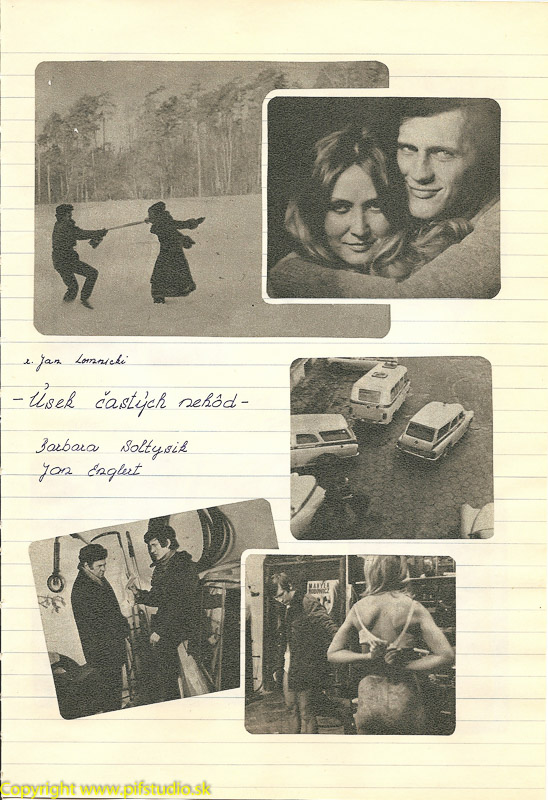 r. Jan Lomnicki
- Úsek častých nehôd -
Barbara Soltysik
Jan Englert
MARYLA
RODOWICZ
Copyright www.pifstudio.sk